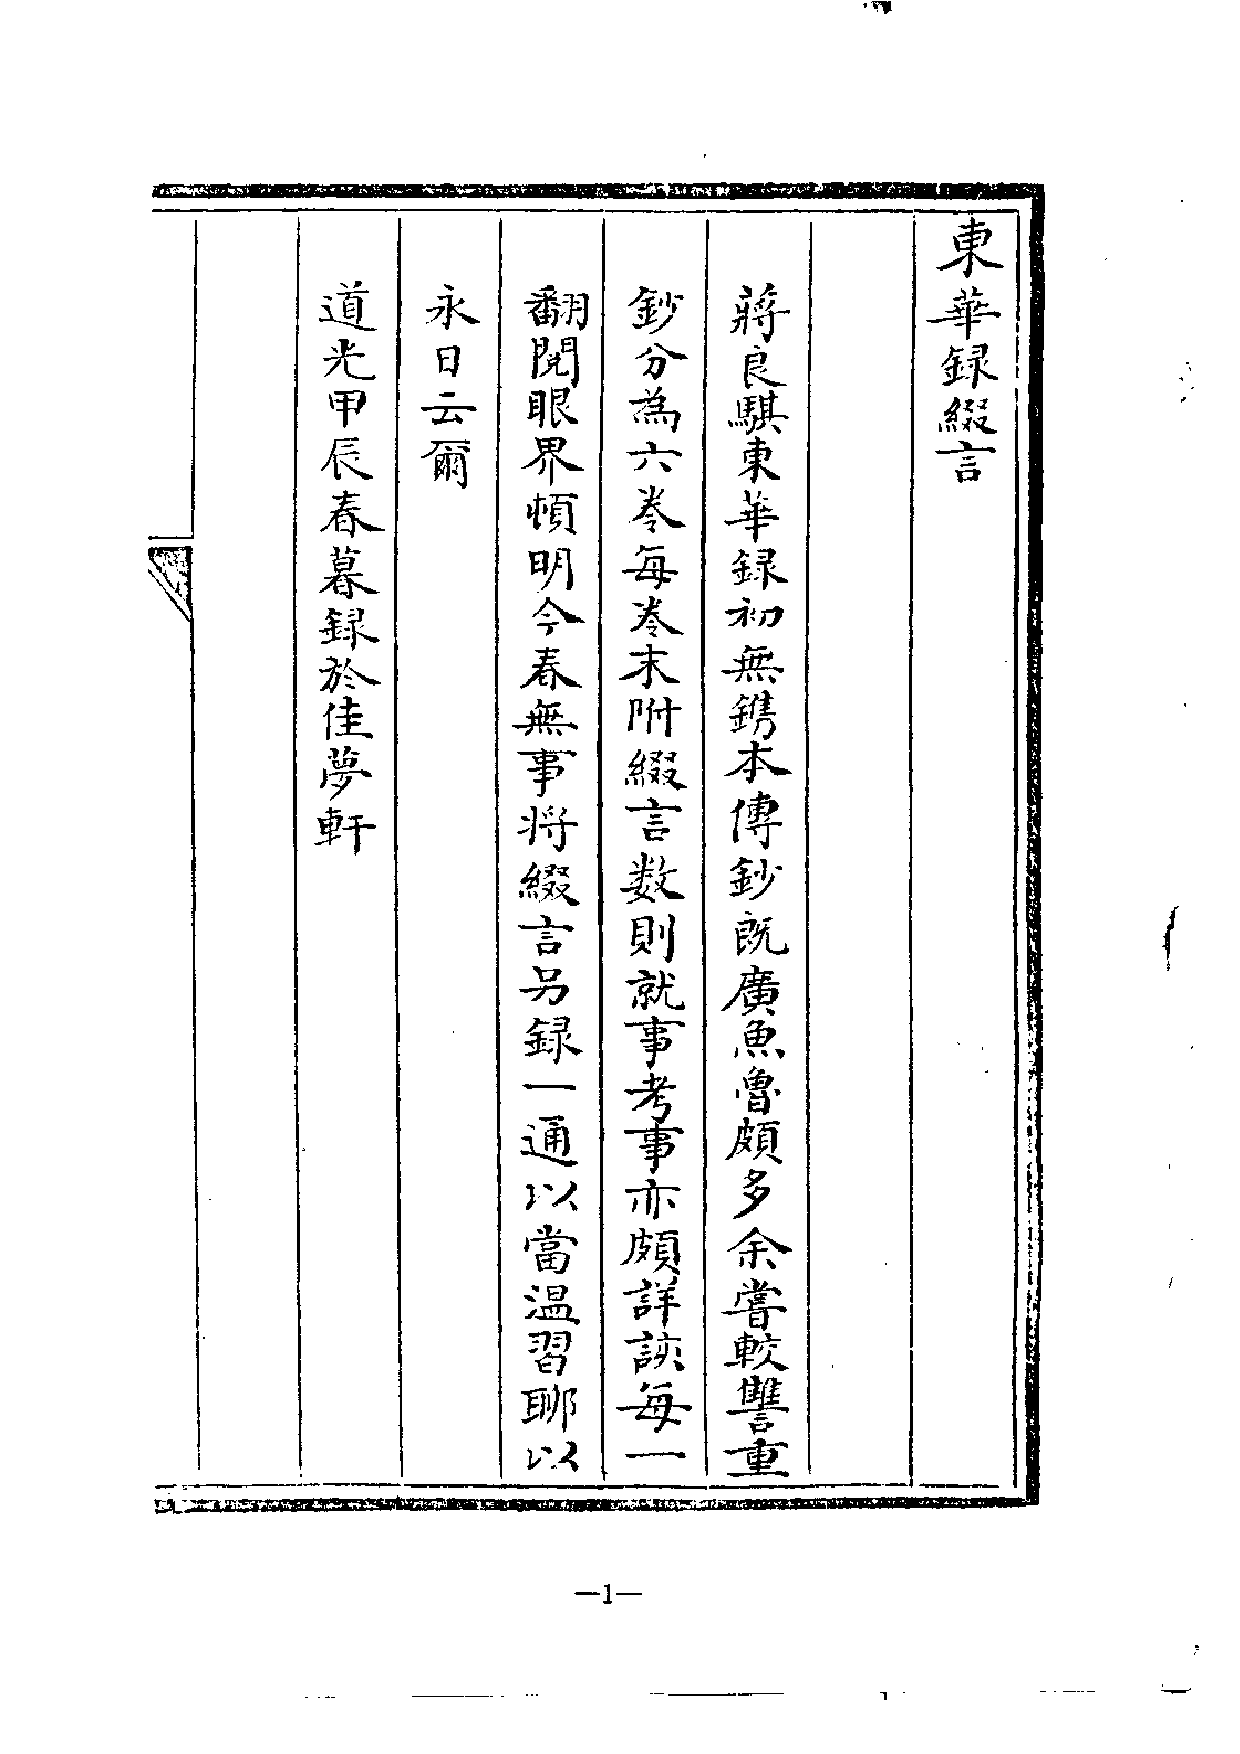 東華録綴言
蔣良騏東華録初無鐫本傳鈔既廣魚魯頗多余嘗較讐重
鈔分為六卷每卷末附綴言数則就事考事亦頗詳該每一
翻閱眼界頓明今春無事将綴言另録一通以當温習聊以
永日云爾
道光甲辰春暮録於佳夢軒
—1—